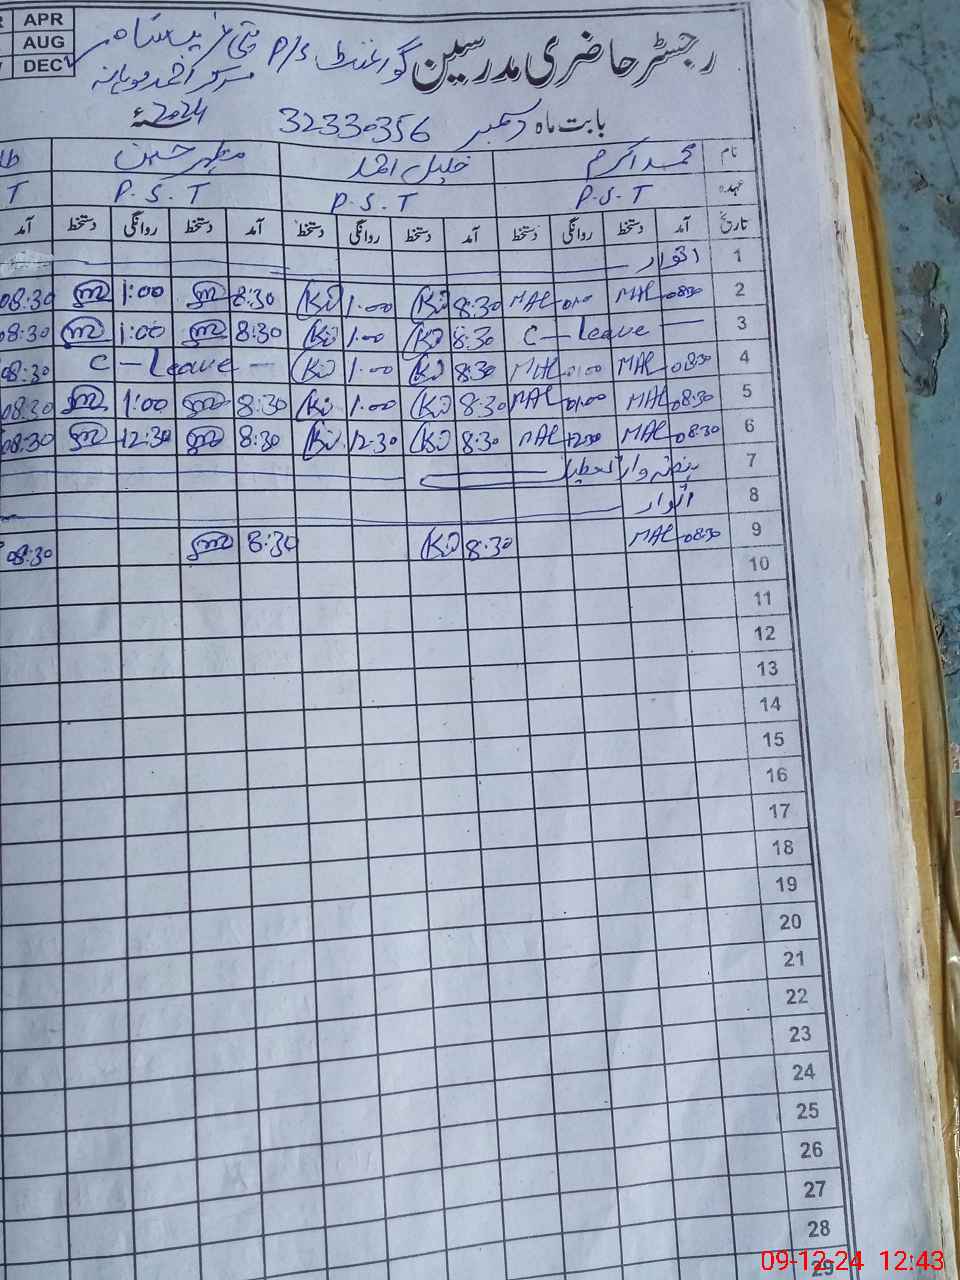 APR
AUG
DEC
رجسٹر حاضری مدرسین گورنمنٹ P/S
بابت ماہ دسمبر 32330356 2024ء
نام محمد اکرم خلیل احمد مظہر حسین
عہدہ P.S.T P.S.T P.S.T T
تاریخ آمد دستخط روانگی دستخط آمد دستخط روانگی دستخط آمد دستخط روانگی دستخط آمد
1 اتوار
2 08:30 MAL 01:00 MAL 8:30 1:00 8:30 1:00 08:30
3 C-Leave 8:30 1:00 8:30 1:00 08:30
4 08:30 MAL 01:00 MAL 8:30 1:00 C-Leave 08:30
5 08:30 MAL 01:00 MAL 8:30 1:00 8:30 1:00 08:30
6 08:30 MAL 12:30 MAL 8:30 12:30 8:30 12:30 08:30
7 ہفتہ وار تعطیل
8 اتوار
9 08:30 MAL 8:30 8:30 08:30
10
11
12
13
14
15
16
17
18
19
20
21
22
23
24
25
26
27
28
29
09-12-24 12:43